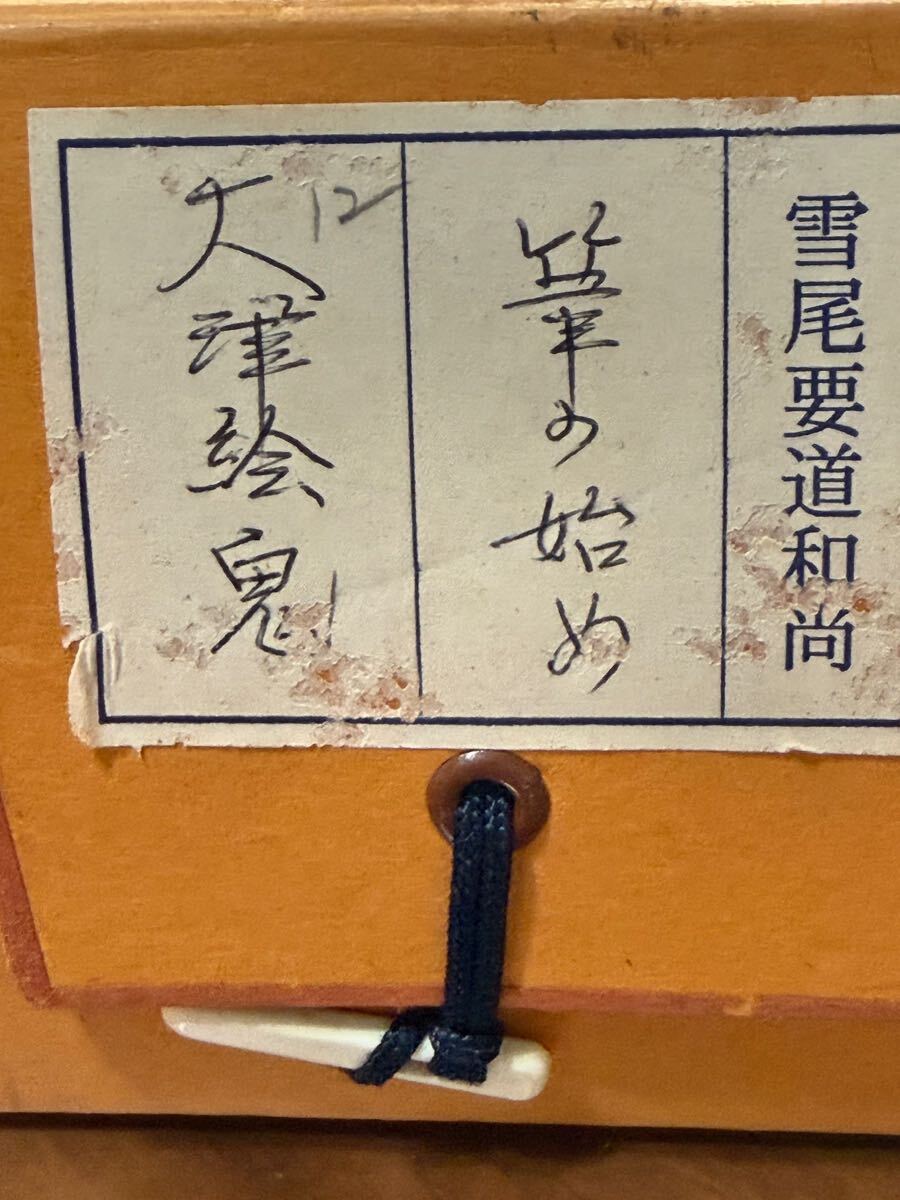 雪尾要道和尚
筆の始め
大津絵鬼
12